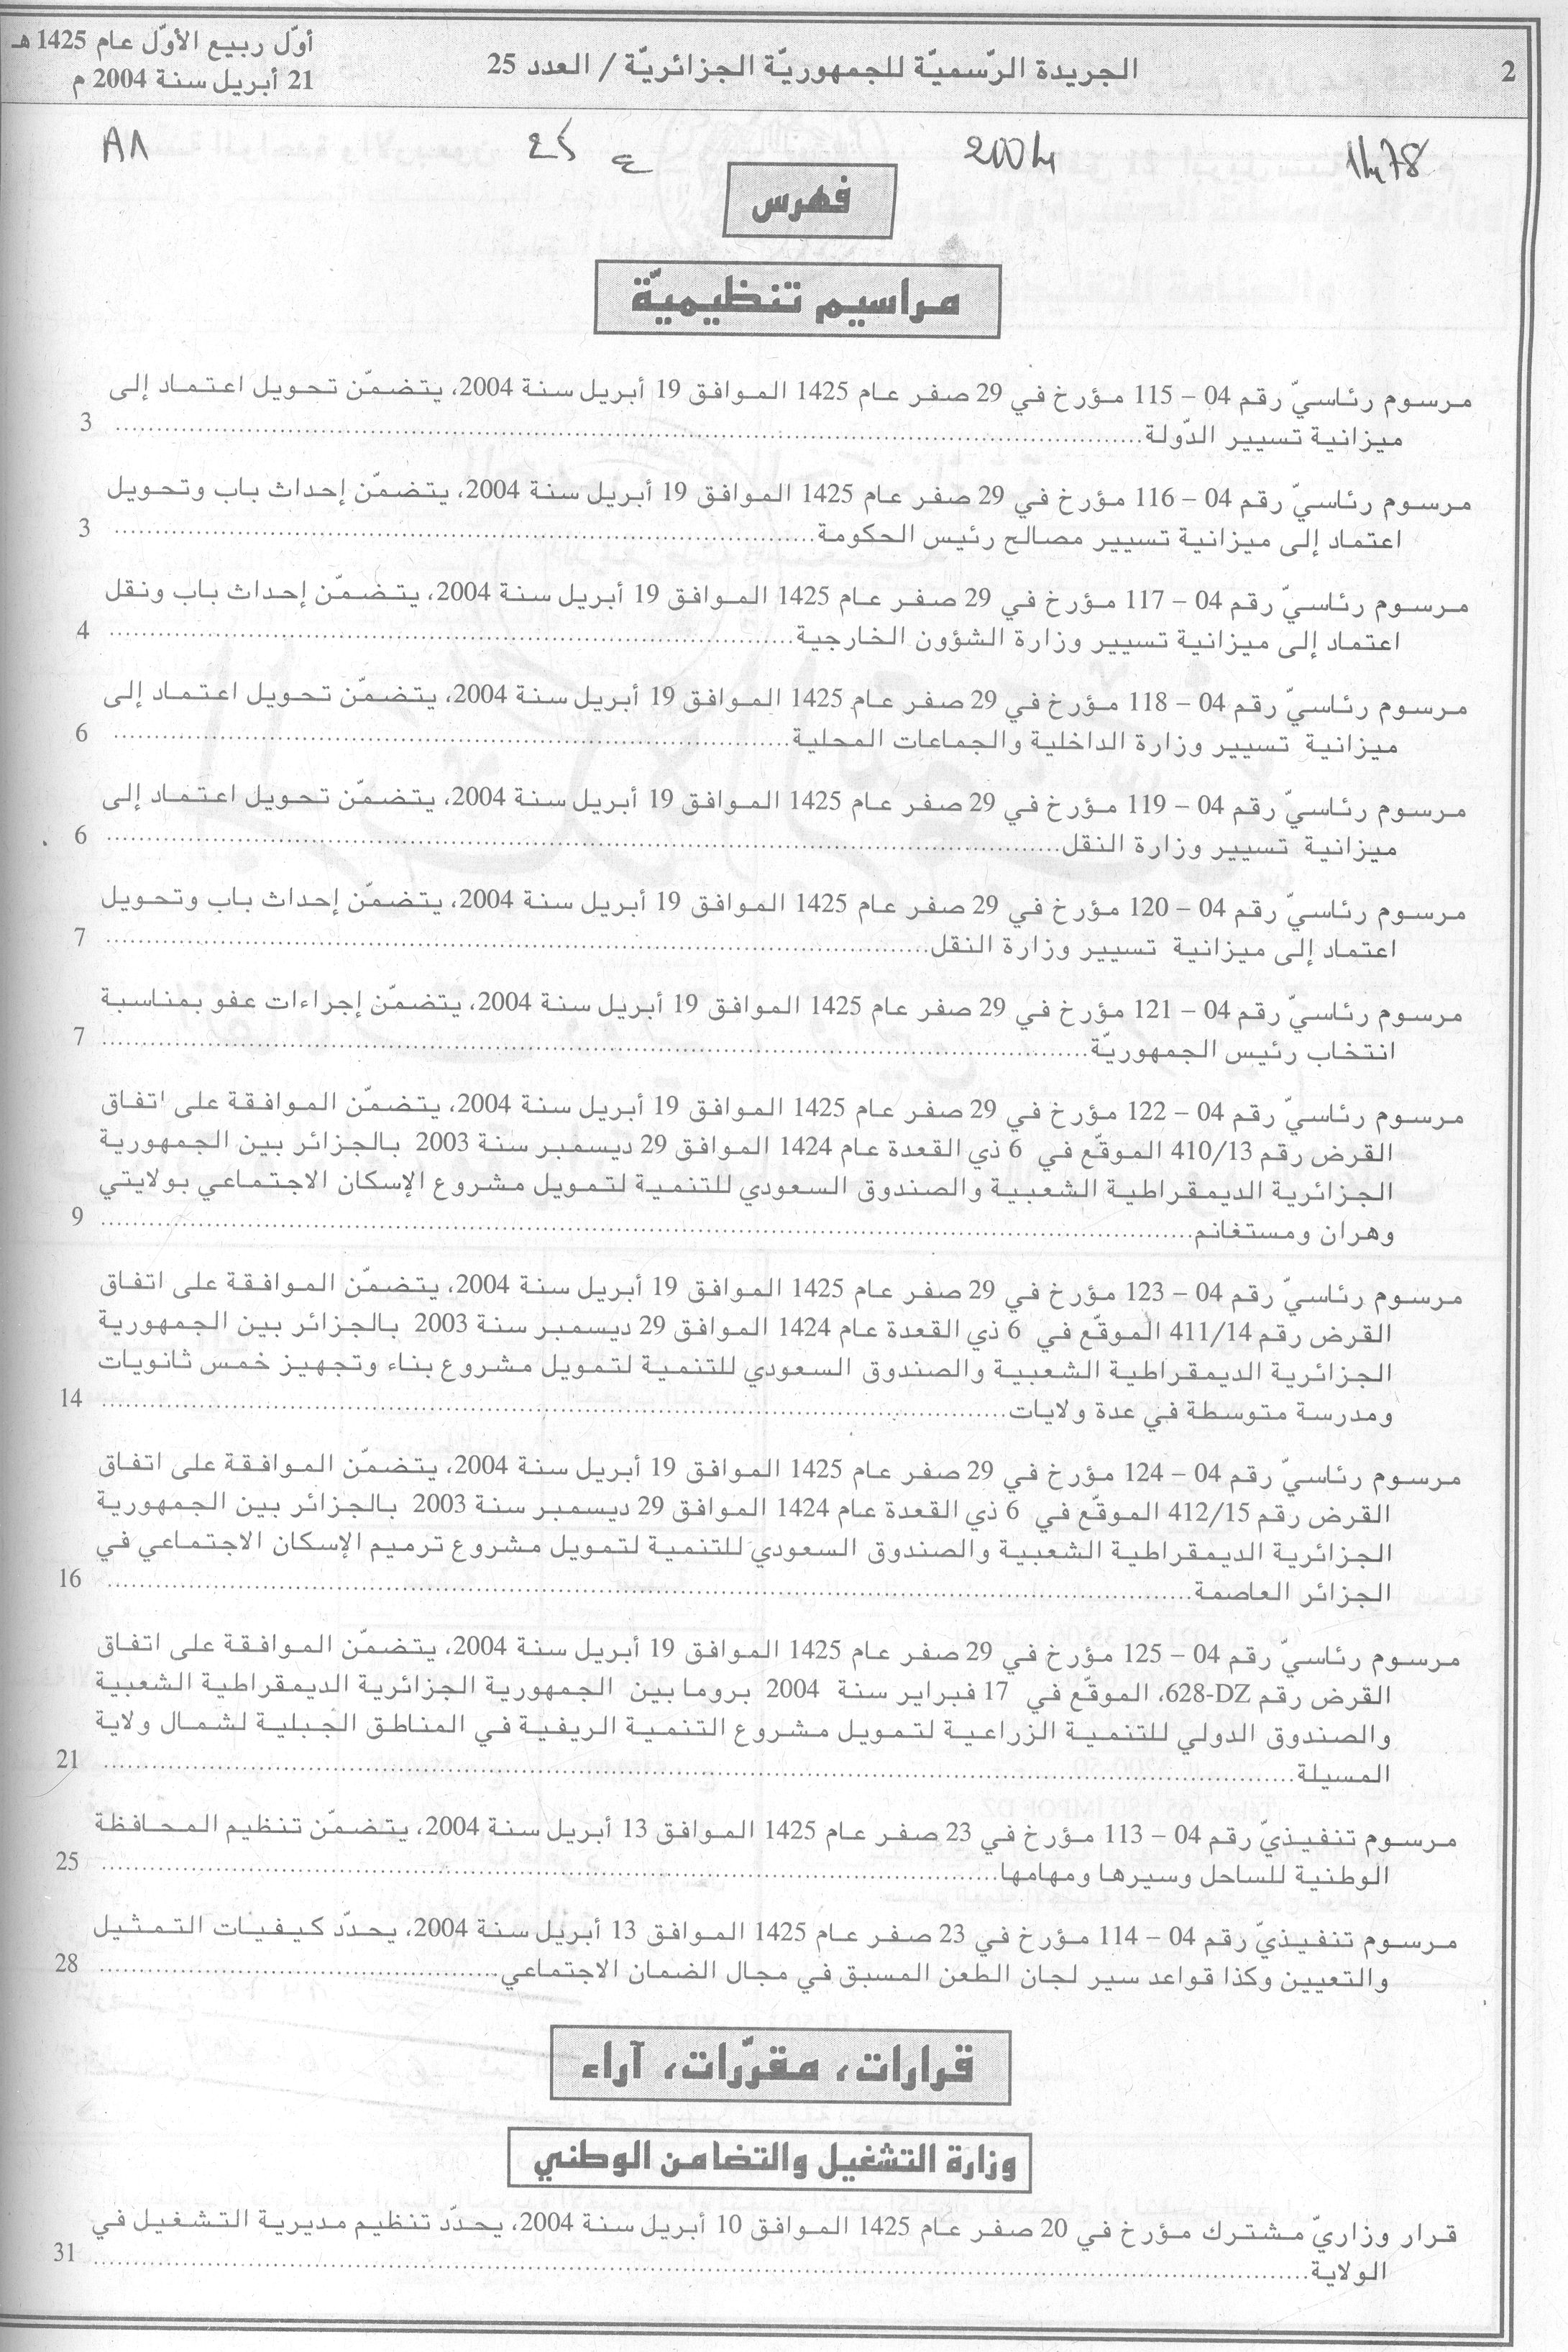 2
الجريدة الرّسميّة للجمهوريّة الجزائريّة / العدد 25
أوّل ربيع الأوّل عام 1425 هـ
21 أبريل سنة 2004 م
1478 2004 ع 25 A1
فهرس
مراسيم تنظيميّة
مرسوم رئاسيّ رقم 04 – 115 مؤرخ في 29 صفر عام 1425 الموافق 19 أبريل سنة 2004، يتضمّن تحويل اعتماد إلى
ميزانية تسيير الدّولة........................ 3
مرسوم رئاسيّ رقم 04 – 116 مؤرخ في 29 صفر عام 1425 الموافق 19 أبريل سنة 2004، يتضمّن إحداث باب وتحويل
اعتماد إلى ميزانية تسيير مصالح رئيس الحكومة........................ 3
مرسوم رئاسيّ رقم 04 – 117 مؤرخ في 29 صفر عام 1425 الموافق 19 أبريل سنة 2004، يتضمّن إحداث باب ونقل
اعتماد إلى ميزانية تسيير وزارة الشؤون الخارجية........................ 4
مرسوم رئاسيّ رقم 04 – 118 مؤرخ في 29 صفر عام 1425 الموافق 19 أبريل سنة 2004، يتضمّن تحويل اعتماد إلى
ميزانية تسيير وزارة الداخلية والجماعات المحلية........................ 6
مرسوم رئاسيّ رقم 04 – 119 مؤرخ في 29 صفر عام 1425 الموافق 19 أبريل سنة 2004، يتضمّن تحويل اعتماد إلى
ميزانية تسيير وزارة النقل........................ 6
مرسوم رئاسيّ رقم 04 – 120 مؤرخ في 29 صفر عام 1425 الموافق 19 أبريل سنة 2004، يتضمّن إحداث باب وتحويل
اعتماد إلى ميزانية تسيير وزارة النقل........................ 7
مرسوم رئاسيّ رقم 04 – 121 مؤرخ في 29 صفر عام 1425 الموافق 19 أبريل سنة 2004، يتضمّن إجراءات عفو بمناسبة
انتخاب رئيس الجمهوريّة........................ 7
مرسوم رئاسيّ رقم 04 – 122 مؤرخ في 29 صفر عام 1425 الموافق 19 أبريل سنة 2004، يتضمّن الموافقة على اتفاق
القرض رقم 410/13 الموقّع في 6 ذي القعدة عام 1424 الموافق 29 ديسمبر سنة 2003 بالجزائر بين الجمهورية
الجزائرية الديمقراطية الشعبية والصندوق السعودي للتنمية لتمويل مشروع الإسكان الاجتماعي بولايتي
وهران ومستغانم........................ 9
مرسوم رئاسيّ رقم 04 – 123 مؤرخ في 29 صفر عام 1425 الموافق 19 أبريل سنة 2004، يتضمّن الموافقة على اتفاق
القرض رقم 411/14 الموقّع في 6 ذي القعدة عام 1424 الموافق 29 ديسمبر سنة 2003 بالجزائر بين الجمهورية
الجزائرية الديمقراطية الشعبية والصندوق السعودي للتنمية لتمويل مشروع بناء وتجهيز خمس ثانويات
ومدرسة متوسطة في عدة ولايات........................ 14
مرسوم رئاسيّ رقم 04 – 124 مؤرخ في 29 صفر عام 1425 الموافق 19 أبريل سنة 2004، يتضمّن الموافقة على اتفاق
القرض رقم 412/15 الموقّع في 6 ذي القعدة عام 1424 الموافق 29 ديسمبر سنة 2003 بالجزائر بين الجمهورية
الجزائرية الديمقراطية الشعبية والصندوق السعودي للتنمية لتمويل مشروع ترميم الإسكان الاجتماعي في
الجزائر العاصمة........................ 16
مرسوم رئاسيّ رقم 04 – 125 مؤرخ في 29 صفر عام 1425 الموافق 19 أبريل سنة 2004، يتضمّن الموافقة على اتفاق
القرض رقم 628-DZ، الموقّع في 17 فبراير سنة 2004 بروما بين الجمهورية الجزائرية الديمقراطية الشعبية
والصندوق الدولي للتنمية الزراعية لتمويل مشروع التنمية الريفية في المناطق الجبلية لشمال ولاية
المسيلة........................ 21
مرسوم تنفيذيّ رقم 04 – 113 مؤرخ في 23 صفر عام 1425 الموافق 13 أبريل سنة 2004، يتضمّن تنظيم المحافظة
الوطنية للساحل وسيرها ومهامها........................ 25
مرسوم تنفيذيّ رقم 04 – 114 مؤرخ في 23 صفر عام 1425 الموافق 13 أبريل سنة 2004، يحدّد كيفيات التمثيل
والتعيين وكذا قواعد سير لجان الطعن المسبق في مجال الضمان الاجتماعي........................ 28
قرارات، مقرّرات، آراء
وزارة التشغيل والتضامن الوطني
قرار وزاريّ مشترك مؤرخ في 20 صفر عام 1425 الموافق 10 أبريل سنة 2004، يحدّد تنظيم مديرية التشغيل في
الولاية........................ 31